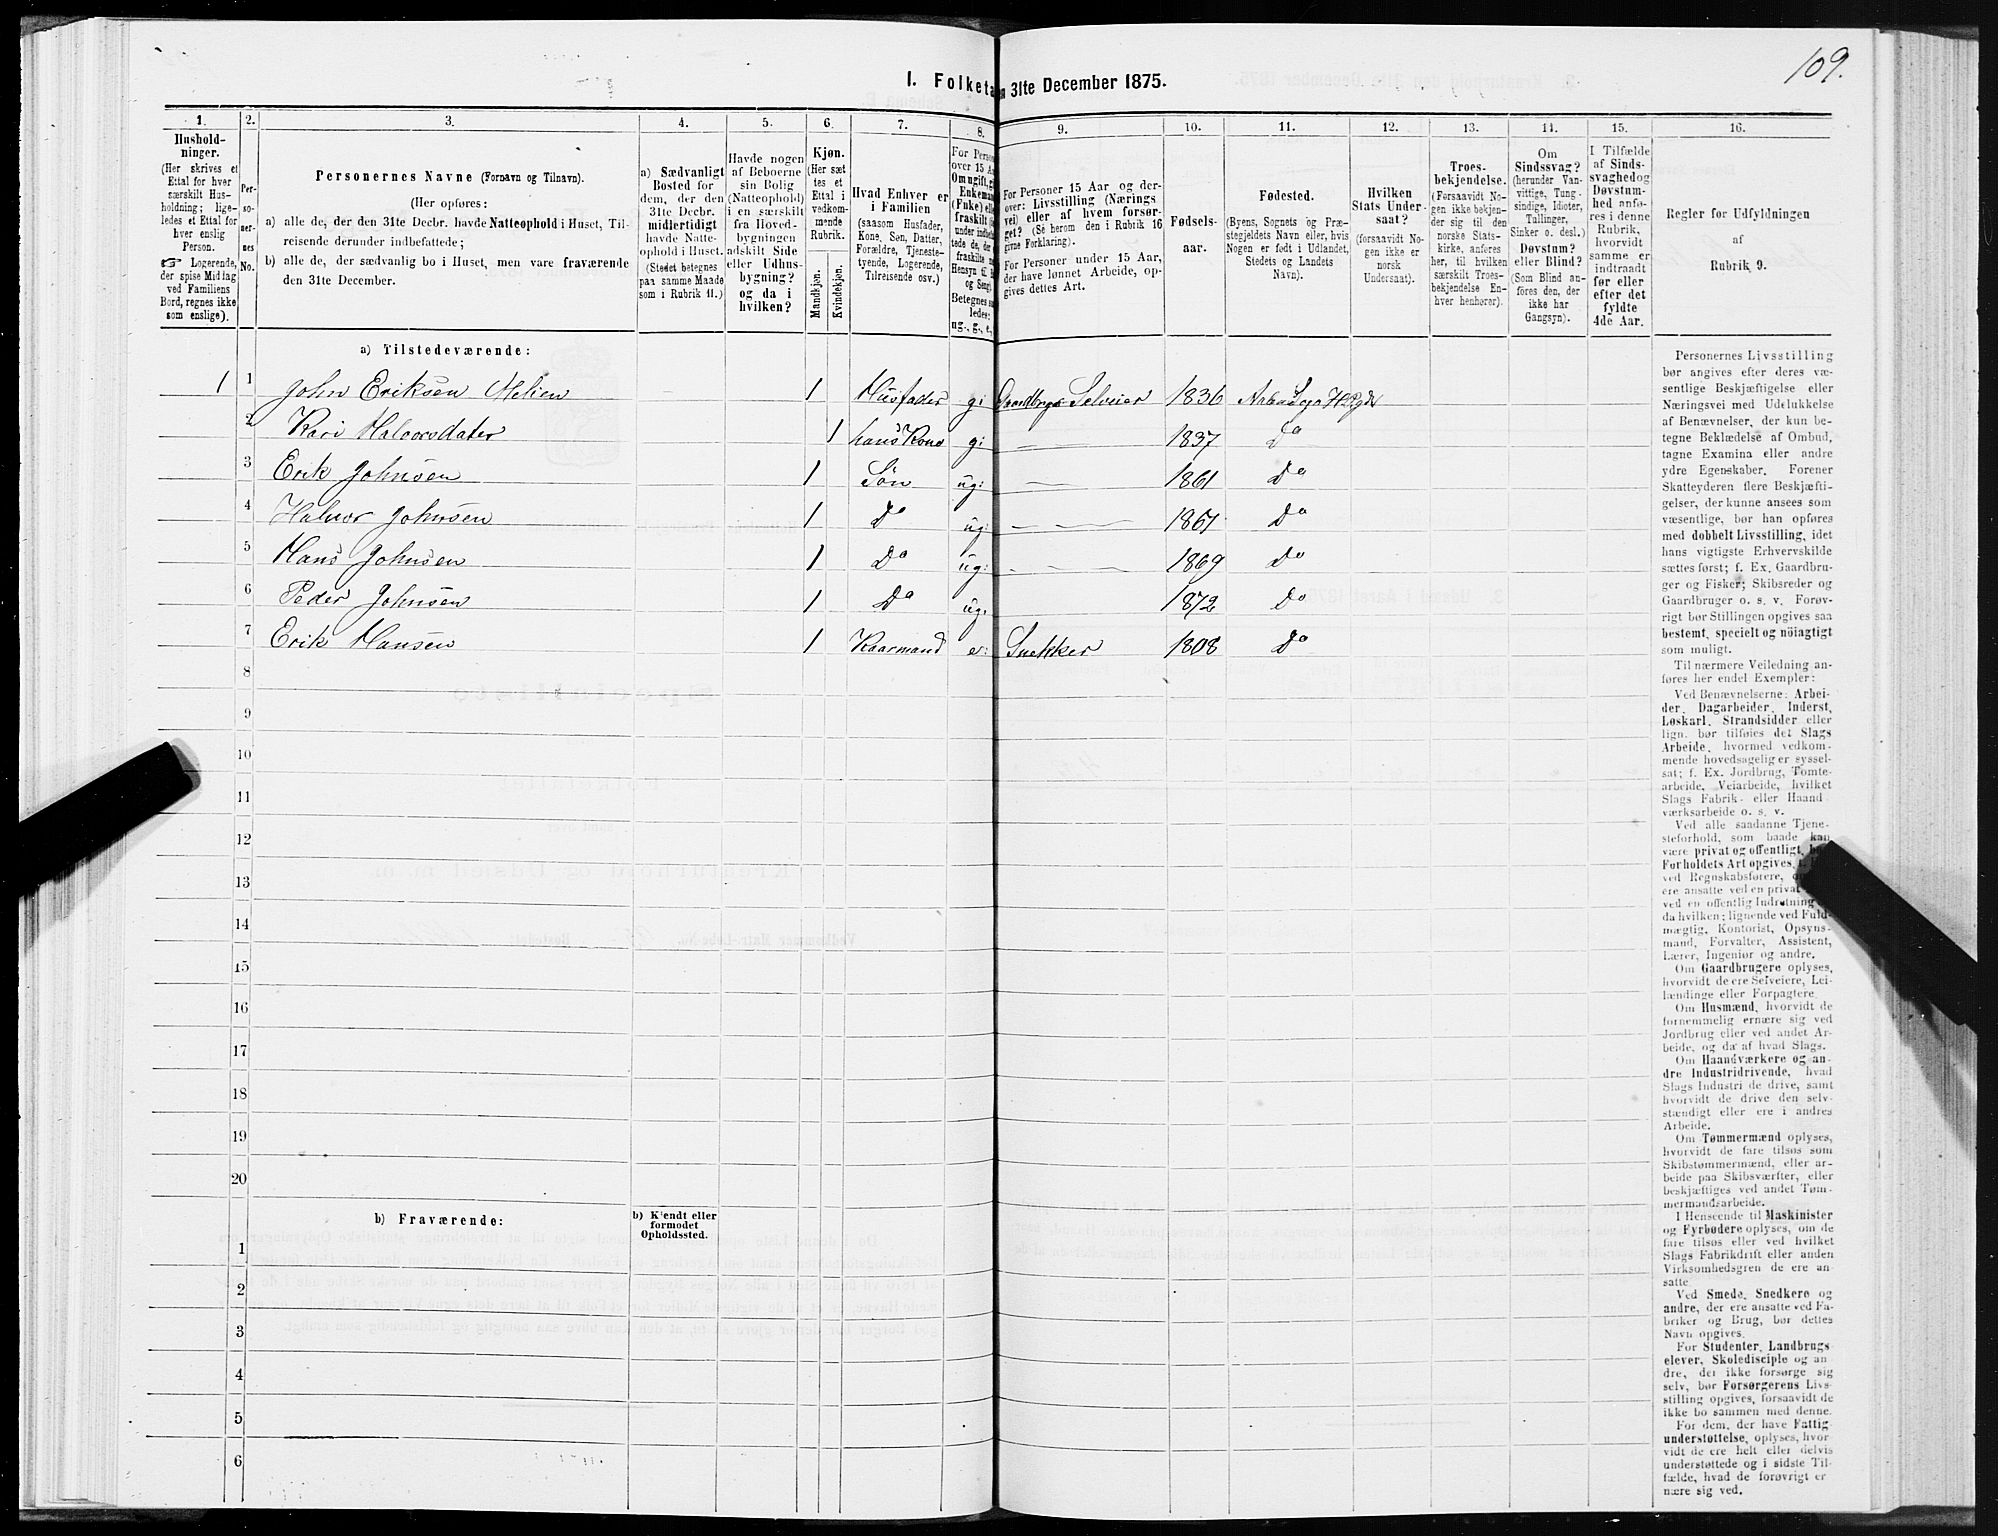 109.
I. Folketa
en 31te December 1875.
1. 2. 3. 4. 5. 6. 7. 8. 9. 10. 11. 12. 13. 14. 15. 16.
Hushold-
ninger.
(Her skrives et
Ettal for hver
særskilt Hus-
holdning; lige-
ledes et Ettal for
hver enslig
Person.
☞ Logerende,
der spise Middag
ved Familiens
Bord, regnes ikke
som enslige).
Per-
so-
ner-
nes
No.
Personernes Navne (Fornavn og Tilnavn).
(Her opføres:
a) alle de, der den 31te Decbr. havde Natteophold i Huset, Til-
reisende derunder indbefattede;
b) alle de, der sædvanlig bo i Huset, men vare fraværende
den 31te December.
a) Sædvanligt
Bosted for
dem, der den
31te Decbr.
midlertidigt
havde Natte-
ophold i Huset.
(Stedet betegnes
paa samme Maade
som i Rubrik 11.)
Havde nogen
af Beboerne
sin Bolig
(Natteophold)
i en særskilt
fra Hoved-
bygningen
adskilt Side
eller Udhus-
bygning?
og da i
hvilken?
Kjøn.
(Her sæt
tes et
Ettal i
vedkom-
mende
Rubrik.
Mandkjøn.
Kvindekjøn.
Hvad Enhver er
i Familien
(saasom Husfader,
Kone, Søn, Datter,
Forældre, Tjeneste-
tyende, Logerende,
Tilreisende osv.)
For Person
over 15 Aa
Om ugift, gi
Enkeman
(Fuke) elle
fraskilt
Hensyn til
og Seng
Betegnes s
ledes:
ug., g., e.,
For Personer 15 Aar og der-
over: Livsstilling (Nærings
vei) eller af hvem forsør-
get? (Se herom den i Rubrik 16
givne Forklaring).
For Personer under 15 Aar,
der have lønnet Arbeide, op-
gives dettes Art.
Fødsels-
aar.
Fødested.
(Byens, Sognets og Præ-
stegjeldets Navn eller, hvis
Nogen er født i Udlandet,
Stedets og Landets
Navn).
Hvilken
Stats Under-
saat?
(forsaavidt No-
gen ikke er
norsk
Undersaat).
Troes-
bekjendelse.
(Forsaavidt No-
gen ikke bekjen-
der sig til den
norske Stats-
kirke, anføres
her, til hvilken
særskilt Troes-
bekjendelse En-
hver henhører).
Om
Sindssvag?
(herunder Van-
vittige, Tung-
sindige, Idioter,
Tullinger,
Sinker o. desl.)
Døvstum?
eller Blind?
(Som Blind an-
føres den, der
ikke har
Gangsyn).
I Tilfælde
af Sinds-
svaghed og
Døvstum-
hed anfø-
res i denne
Rubrik,
hvorvidt
samme er
indtraadt
før eller
efter det
fyldte
4de Aar.
Regler for Udfyldningen
af
Rubrik 9.
a) Tilstedeværende:
1 1 John Eriksen Melien 1 Husfader g: Gaardbruger Selveier 1836
2 Kari Halvorsdater 1 hans Kone g: 1837 Do
3 Erik Johnsen 1 Søn ug: 1861 Do
4 Halvor Johnsen 1 Do ug: 1867 Do
5 Hans Johnsen 1 Do ug: 1869 Do
6 Peder Johnsen 1 Do ug: 1872 Do
7 Erik Hansen 1 Kaarmand e: Snekker 1808 Do
8
9
10
11
12
13
14
15
16
17
18
19
20
b) Fraværende:
b) Kjendt eller
formodet
Opholdssted.
1
2
3
4
5
6
Personernes Livsstilling
bør angives efter deres væ-
sentlige Beskjæftigelse eller
Næringsvei med Udelukkelse
af Benævnelser, der kun be-
tegne Beklædelse af Ombud,
tagne Examina eller andre
ydre Egenskaber. Forener
Skatteyderen flere Beskjæfti-
gelser, der kunne ansees som
væsentlige, bør han opføres
med dobbelt Livsstilling, idet
hans vigtigste Erhvervskilde
sættes først; f. Ex. Gaardbru-
ger og Fisker; Skibsreder og
Gaardbruger o. s. v. Forøv-
rigt bør Stillingen opgives saa
bestemt, specielt og nöiagtigt
som muligt.
Til nærmere Veiledning an-
føres her endel Exempler:
Ved Benævnelserne: Arbei-
der, Dagarbeider, Inderst,
Løskarl, Strandsidder eller
lign. bør tilføies det Slags
Arbeide, hvormed vedkom-
mende hovedsagelig er syssel-
sat; f. Ex. Jordbrug, Tomte-
arbeide, Veiarbeide, hvilket
Slags Fabrik- eller Haand
værksarbeide o. s. v.
Ved alle saadanne Tjene-
steforhold, som baade kan
være privat og offentligt,
Forholdets Art opgives,
ved Regnskabsførere,
ere ansatte ved en privat
ved en offentlig Indretning
da hvilken; lignende ved Fuld-
mægtig, Kontorist, Opsyns-
mand, Forvalter, Assistent,
Lærer, Ingeniør og andre.
Om Gaardbrugere oplyses,
hvorvidt de ere Selveiere, Lei-
lændinge eller Forpagtere.
Om Husmænd, hvorvidt de
fornemmelig ernære sig ved
Jordbrug eller ved andet Ar-
beide, og da af hvad Slags.
Om Haandværkere og an-
dre Industridrivende, hvad
Slags Industri de drive, samt
hvorvidt de drive den selv-
stændigt eller ere i andres
Arbeide.
Om Tømmermænd oplyses,
hvorvidt de fare tilsøs som
Skibstømmermænd, eller ar-
beide paa Skibsværfter, eller
beskjæftiges ved andet Tøm-
mermandsarbeide.
I Henseende til Maskinister
og Fyrbødere oplyses, om de
fare tilsøs eller ved hvilket
Slags Fabrikdrift eller anden
Virksomhedsgren de ere an-
satte.
Ved Smede, Snedkere og
andre, der ere ansatte ved Fa-
briker og Brug, bør dettes
Navn opgives.
For Studenter, Landbrugs
elever, Skoledisciple og an
dre, der ikke forsørge sig
selv, bør Forsørgerens Livs-
stilling opgives, forsaavidt de
ikke bo sammen med denne.
For dem, der have Fattig
understøttelse, oplyses, hvor-
vidt de ere helt eller delvis
understøttede og i sidste Til-
fælde, hvad de forøvrigt er
nære sig ved.